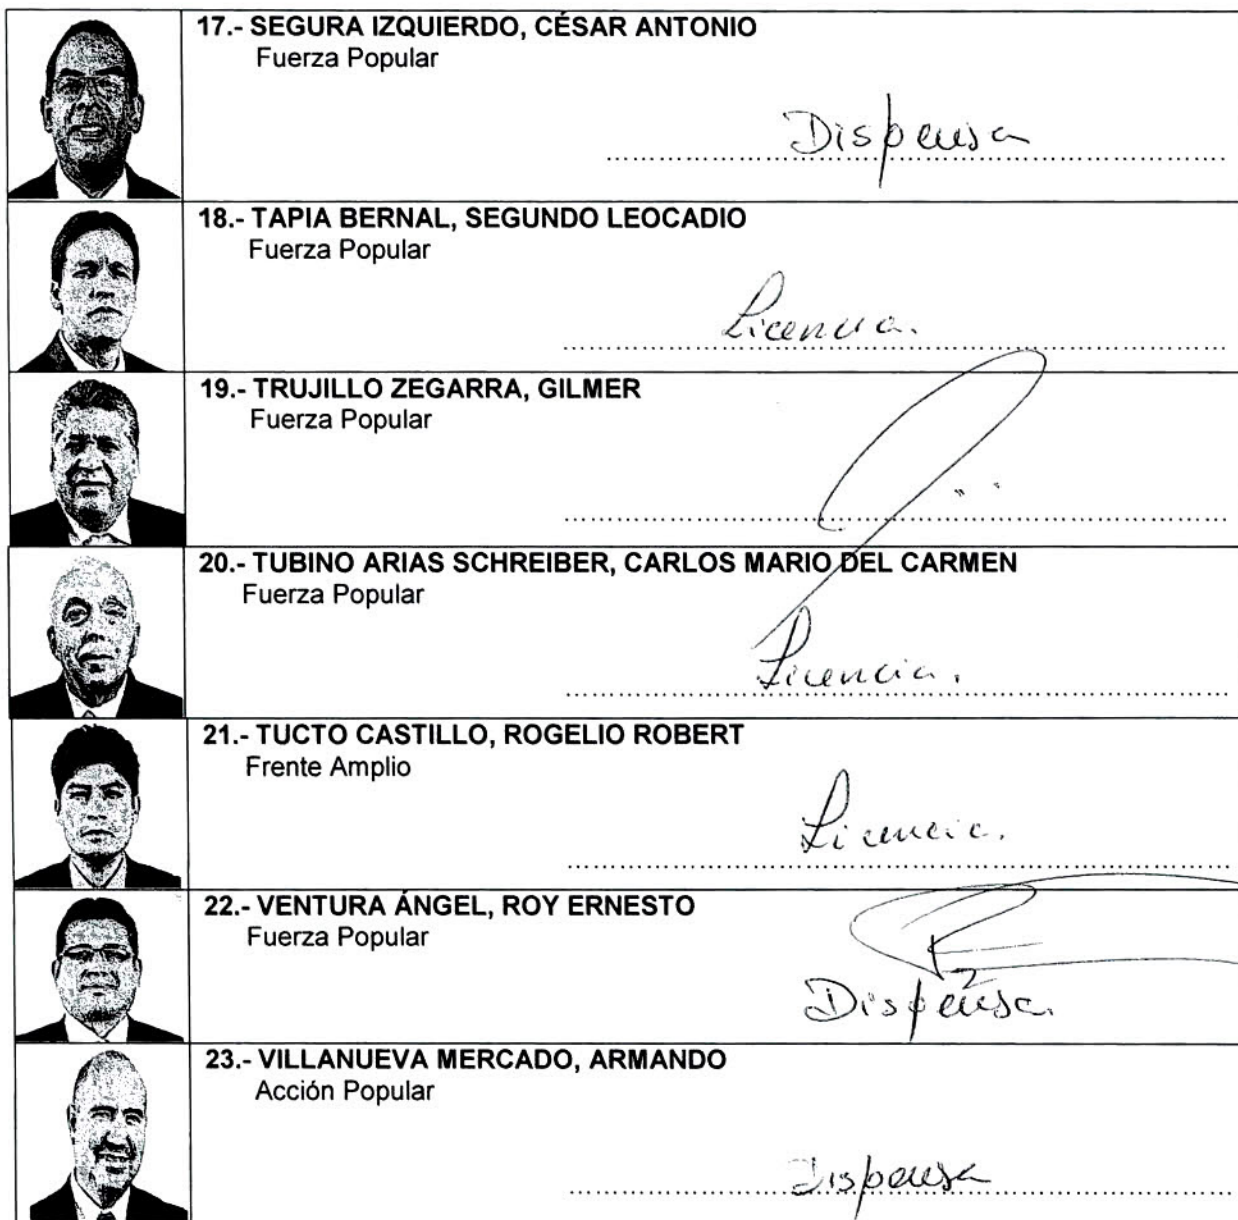 17.- SEGURA IZQUIERDO, CÉSAR ANTONIO
Fuerza Popular
Dispensa
18.- TAPIA BERNAL, SEGUNDO LEOCADIO
Fuerza Popular
Licencia.
19.- TRUJILLO ZEGARRA, GILMER
Fuerza Popular
20.- TUBINO ARIAS SCHREIBER, CARLOS MARIO DEL CARMEN
Fuerza Popular
Licencia.
21.- TUCTO CASTILLO, ROGELIO ROBERT
Frente Amplio
Licencia.
22.- VENTURA ÁNGEL, ROY ERNESTO
Fuerza Popular
Dispensa.
23.- VILLANUEVA MERCADO, ARMANDO
Acción Popular
Dispensa